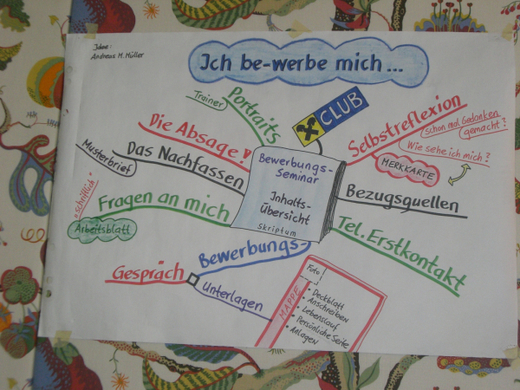 Idee:
Andreas M. Müller
Ich be-werbe mich ...
Portraits
Trainer
CLUB
Selbstreflexion
schon mal Gedanken
gemacht?
Wie sehe ich mich?
MERKKARTE
Die Absage!
Das Nachfassen
Musterbrief
Bewerbungs-
Seminar
Inhalts-
Übersicht
Skriptum
Bezugsquellen
Fragen an mich
schriftlich
Arbeitsblatt
Tel. Erstkontakt
Bewerbungs-
Gespräch
Unterlagen
MAPPE
Foto
• Deckblatt
• Anschreiben
• Lebenslauf
• Persönliche Seite
• Anlagen